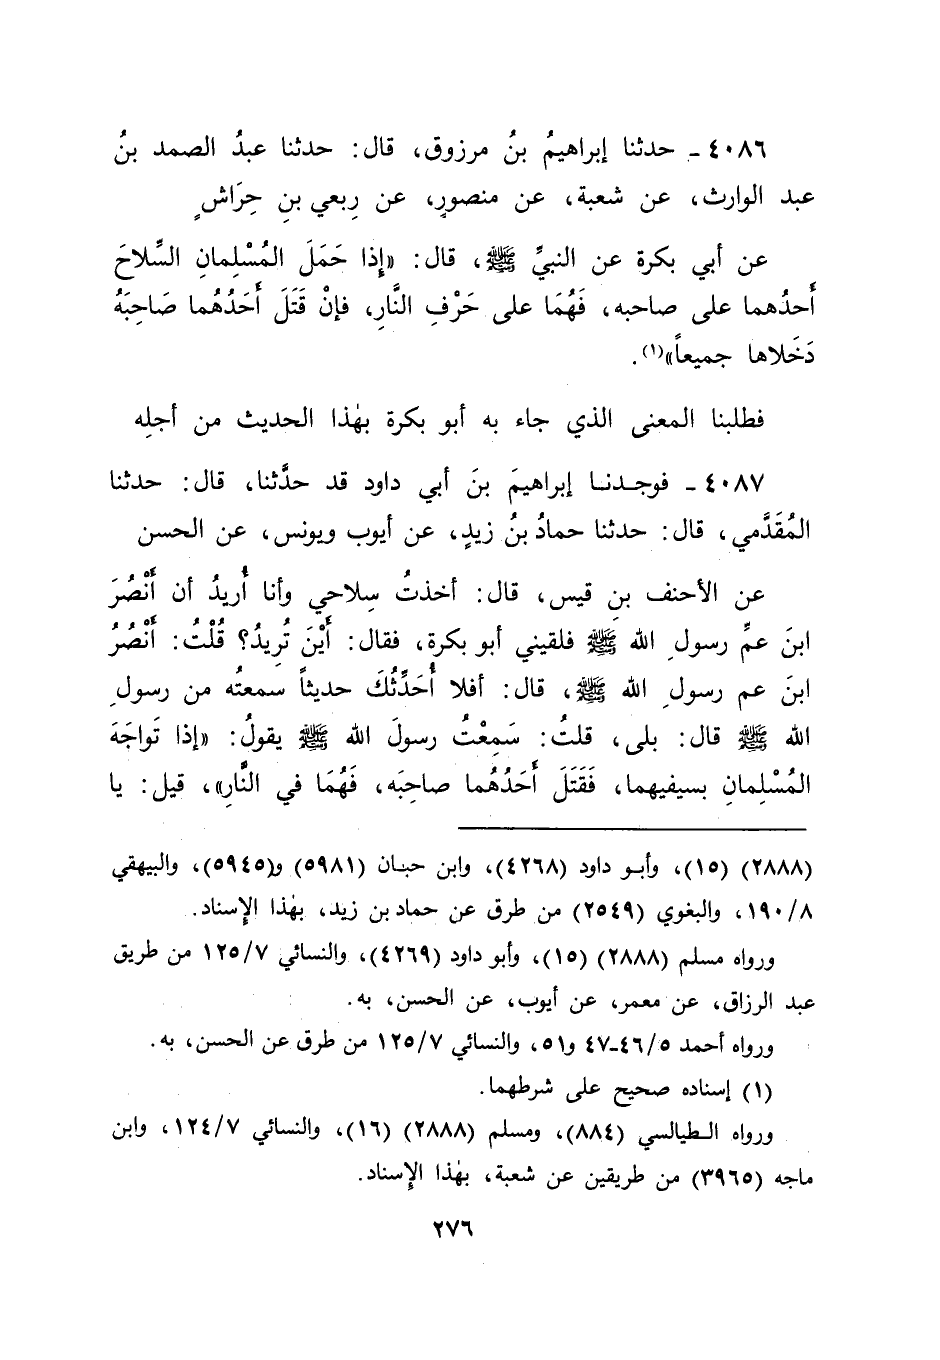 ٤٠٨٦ ـ حدثنا إبراهيمُ بنُ مرزوق، قال: حدثنا عبدُ الصمد بنُ
عبد الوارث، عن شعبة، عن منصورٍ، عن رِبعي بنِ حِرَاشٍ
عن أبي بكرة عن النبيِّ ﷺ، قال: «إِذا حَمَلَ المُسْلِمانِ السِّلاحَ
أَحدُهما على صاحبه، فَهُمَا على حَرْفِ النَّارِ، فإنْ قَتَلَ أَحَدُهُما صَاحِبَهُ
دَخَلاها جميعاً»(١).
فطلبنا المعنى الذي جاء به أبو بكرة بهٰذا الحديث من أجلِه
٤٠٨٧ ـ فوجدنا إبراهيمَ بنَ أبي داود قد حدَّثنا، قال: حدثنا
المُقَدَّمي، قال: حدثنا حمادُ بنُ زيدٍ، عن أيوب ويونس، عن الحسن
عن الأحنف بنِ قيس، قال: أخذتُ سِلاحي وأنا أُريدُ أن أَنْصُرَ
ابنَ عمِّ رسولِ الله ﷺ فلقيني أبو بكرة، فقال: أَيْنَ تُرِيدُ؟ قُلْتُ: أَنْصُرُ
ابنَ عم رسولِ الله ﷺ، قال: أفلا أُحَدِّثُكَ حديثاً سمعتُه من رسولِ
الله ﷺ قال: بلى، قلتُ: سَمِعْتُ رسولَ الله ﷺ يقولُ: «إذا تَواجَهَ
المُسْلِمانِ بسيفيهما، فَقَتَلَ أَحَدُهُما صاحِبَه، فَهُمَا في النَّارِ»، قيل: يا
(٢٨٨٨) (١٥)، وأبو داود (٤٢٦٨)، وابن حبان (٥٩٨١) و(٥٩٤٥)، والبيهقي
١٩٠/٨، والبغوي (٢٥٤٩) من طرق عن حماد بن زيد، بهٰذا الإسناد.
ورواه مسلم (٢٨٨٨) (١٥)، وأبو داود (٤٢٦٩)، والنسائي ١٢٥/٧ من طريق
عبد الرزاق، عن معمر، عن أيوب، عن الحسن، به.
ورواه أحمد ٤٦/٥-٤٧ و٥١، والنسائي ١٢٥/٧ من طرق عن الحسن، به.
(١) إسناده صحيح على شرطهما.
ورواه الطيالسي (٨٨٤)، ومسلم (٢٨٨٨) (١٦)، والنسائي ١٢٤/٧، وابن
ماجه (٣٩٦٥) من طريقين عن شعبة، بهٰذا الإسناد.
٢٧٦